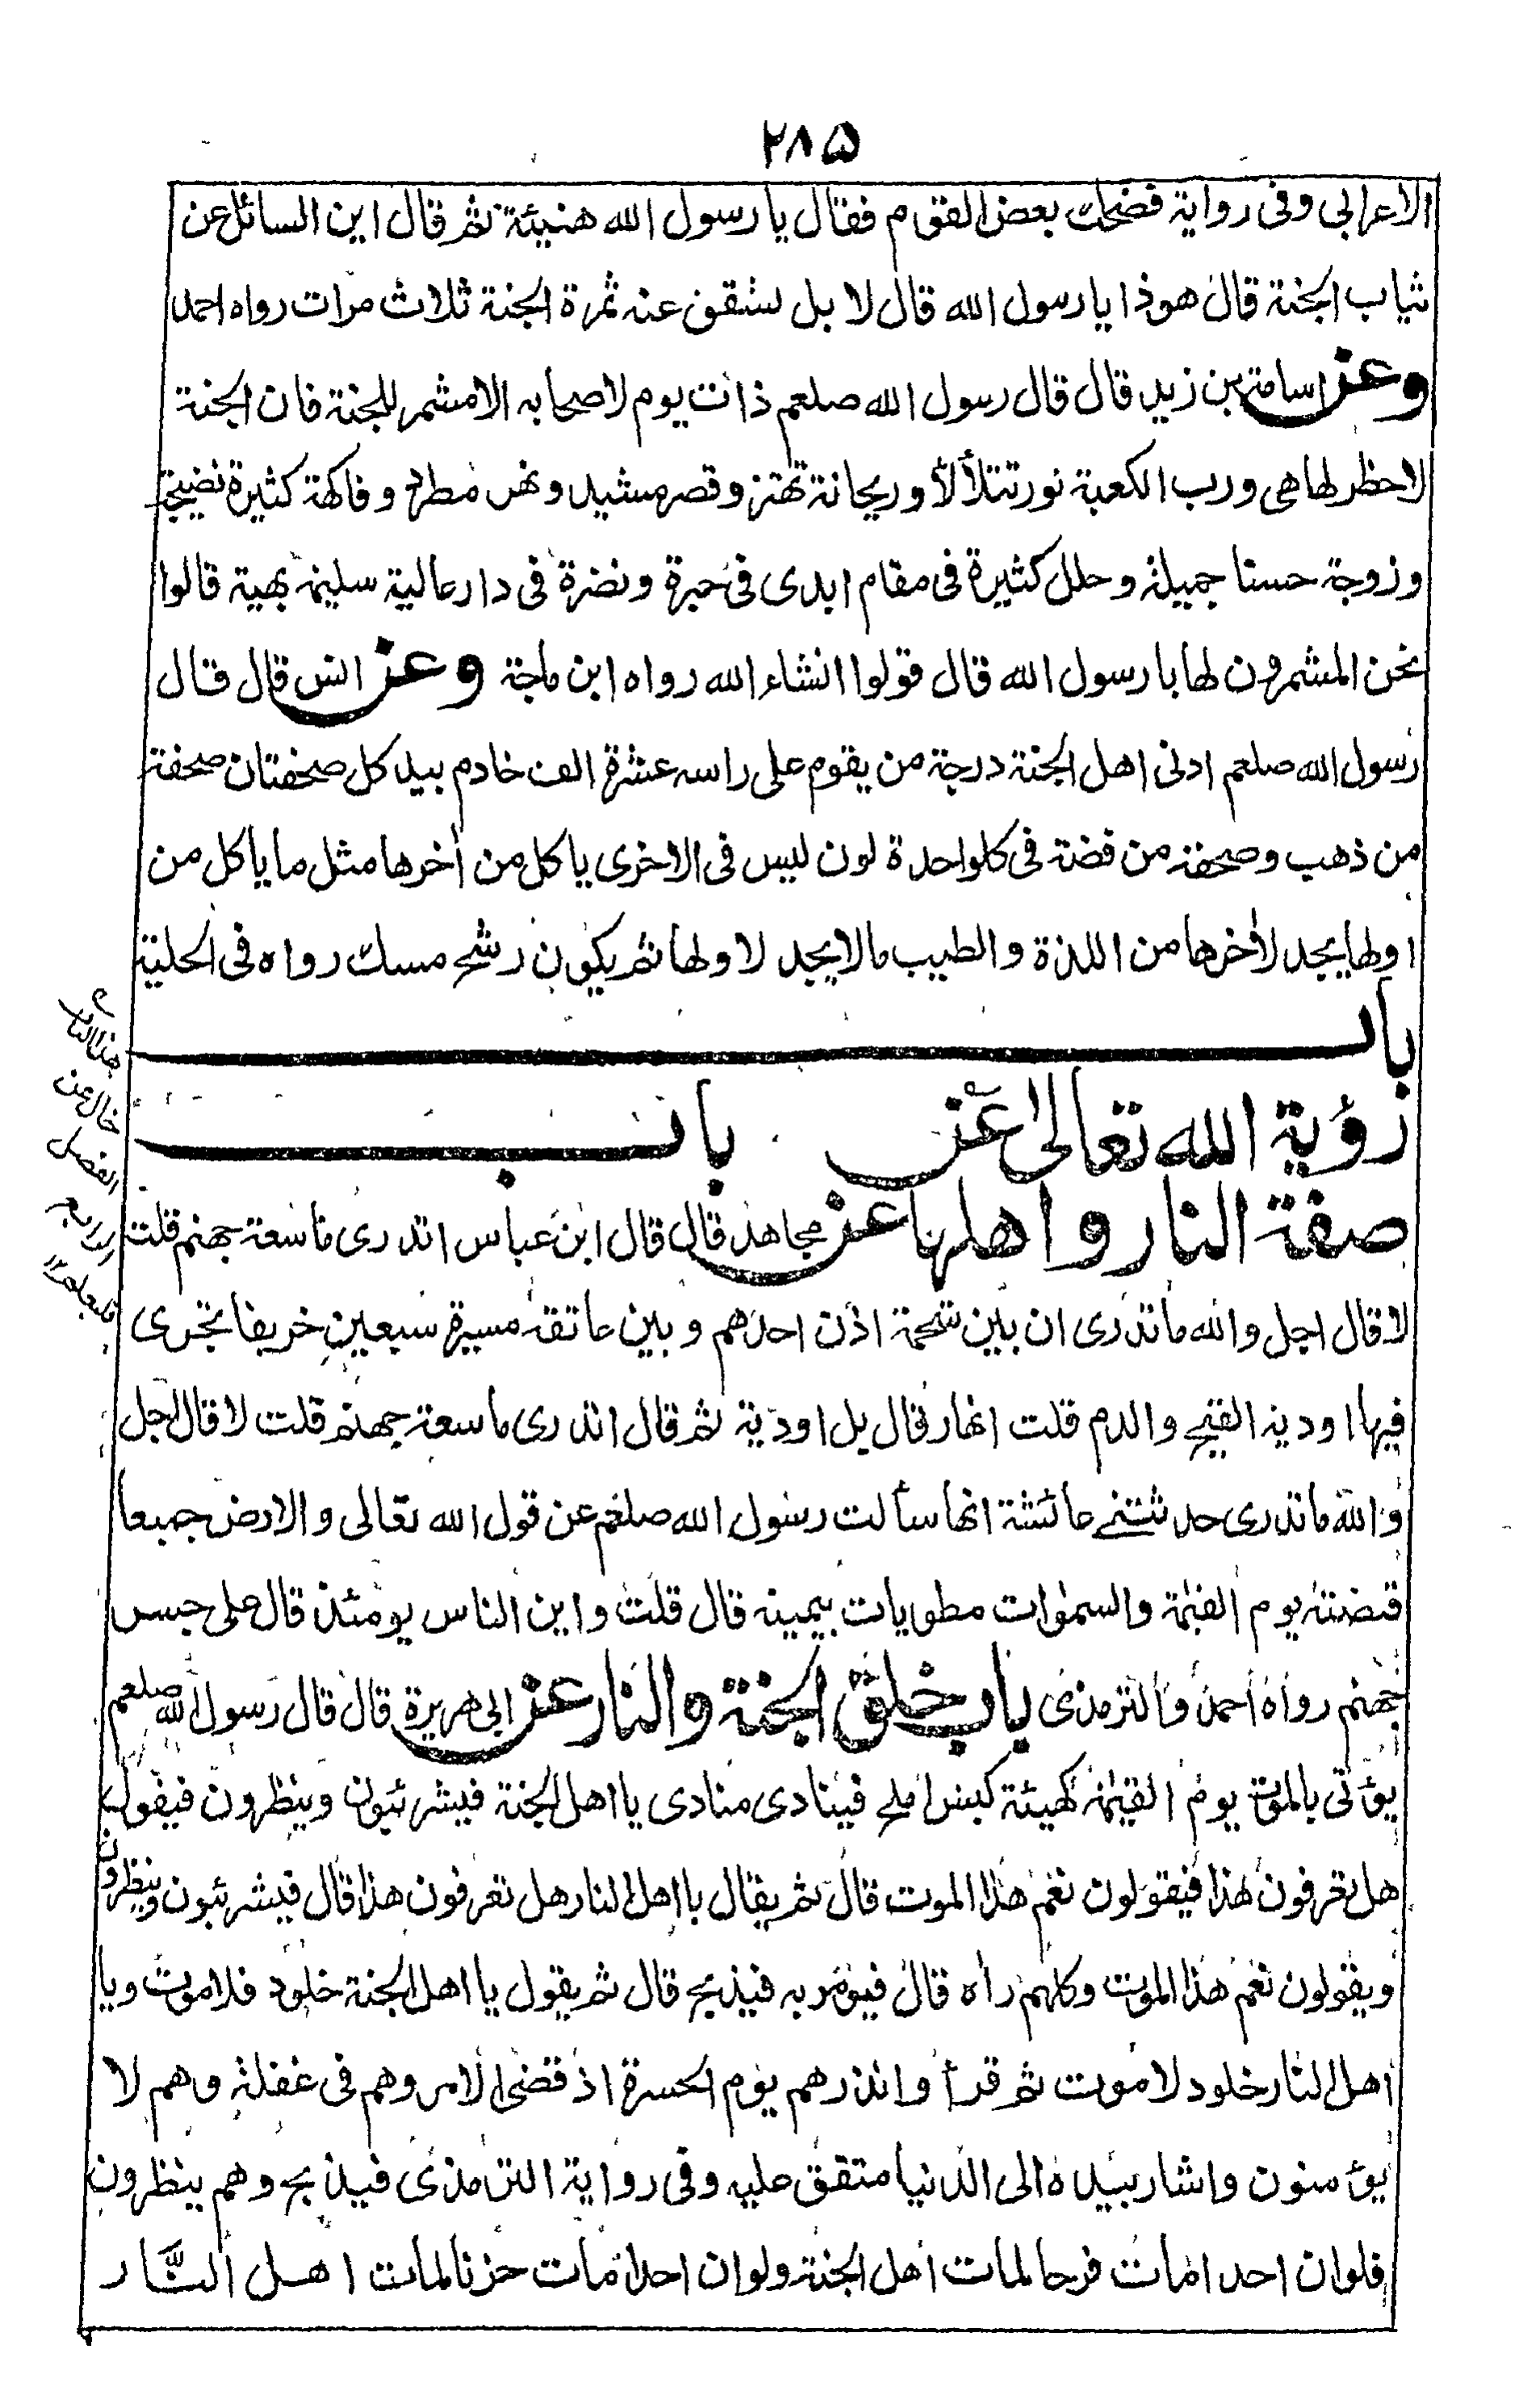 ۲۸۵
الاعرابى وفى رواية فضحك بعض القوم فقال يا رسول الله هنيئة ثم قال اين السائل عن
ثياب الجنة قال هوذا يا رسول الله قال لا بل تشقق عنه ثمرة الجنة ثلاث مرات رواه احمد
وعن اسامة بن زيد قال قال رسول الله صلعم ذات يوم لاصحابه الا مشمر للجنة فان الجنة
لا خطر لها هى ورب الكعبة نور تتلألأ وريحانة تهتز وقصر مشيد ونهر مطرد وفاكهة كثيرة نضيجة
وزوجة حسنا جميلة وحلل كثيرة فى مقام ابدى فى حبرة ونضرة فى دار عالية سليمة بهية قالوا
نحن المشمرون لها يا رسول الله قال قولوا انشاء الله رواه ابن ماجة وعن انس قال قال
رسول الله صلعم ادنى اهل الجنة درجة من يقوم على راسه عشرة الف خادم بيد كل صحفتان صحفة
من ذهب وصحفة من فضة فى كل واحدة لون ليس فى الاخرى ياكل من أخرها مثل ما ياكل من
اولها يجد لأخرها من اللذة والطيب ما لا يجد لاولها ثم يكون رشح مسك رواه فى الحلية
باب
رؤية الله تعالى عن باب
صفة النار واهلها عن مجاهد قال قال ابن عباس اتدرى ما سعة جهنم قلت
لا قال اجل والله ما تدرى ان بين شحمة اذن احدهم وبين عاتقه مسيرة سبعين خريفا تجرى
فيها اودية القيح والدم قلت انهار قال بل اودية ثم قال اتدرى ما سعة جهنم قلت لا قال اجل
والله ما تدرى حدثتنى عائشة انها سألت رسول الله صلعم عن قول الله تعالى والارض جميعا
قبضته يوم القيمة والسموات مطويات بيمينه قال قلت واين الناس يومئذ قال على جسر
جهنم رواه احمد والترمذى باب خلق الجنة والنار عن ابى هريرة قال قال رسول الله صلعم
يؤتى بالموت يوم القيمة كهيئة كبش املح فينادى منادى يا اهل الجنة فيشرئبون وينظرون فيقول
هل تعرفون هذا فيقولون نعم هذا الموت قال ثم يقال يا اهل النار هل تعرفون هذا قال فيشرئبون وينظرون
ويقولون نعم هذا الموت وكلهم رأه قال فيؤمر به فيذبح قال ثم يقول يا اهل الجنة خلود فلا موت ويا
اهل النار خلود لا موت ثم قرأ وانذرهم يوم الحسرة اذ قضى الامر وهم فى غفلة وهم لا
يؤمنون واشار بيده الى الدنيا متفق عليه وفى رواية الترمذى فيذبح وهم ينظرون
فلو ان احدا مات فرحا لمات اهل الجنة ولو ان احدا مات حزنا لمات اهل النار
هذا الباب
خال عن
الفصل
الرابع